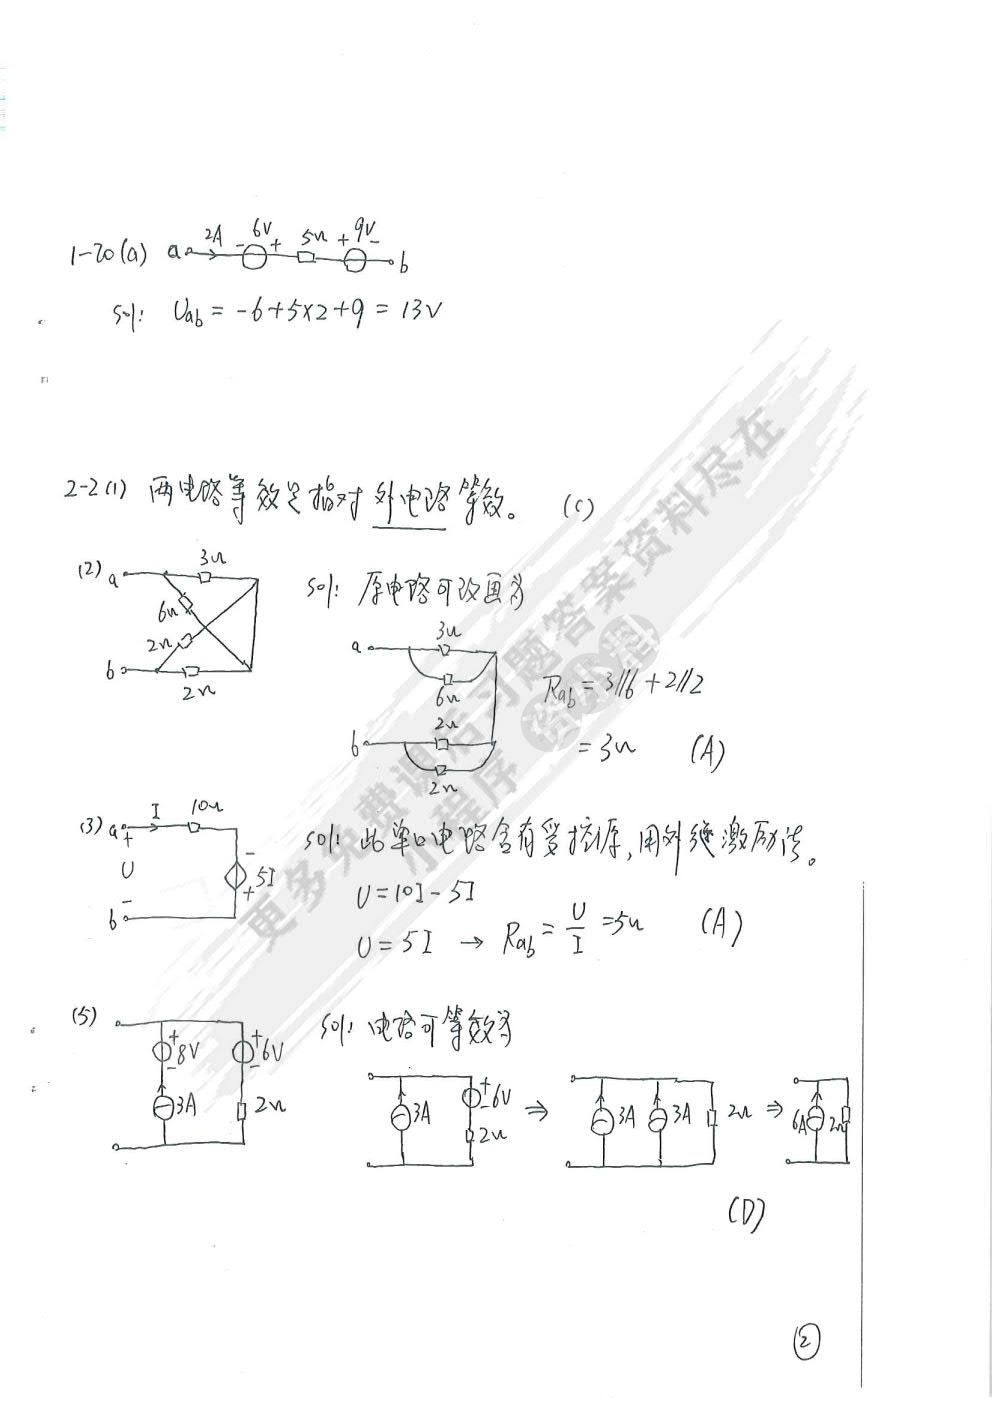 1-20(a) a 2A - 6V + 5Ω + 9V - b
Sol: Uab = -6+5×2+9 = 13V
2-2 (1) 两电路等效是指对外电路等效。 (C)
(2) a 3Ω 6Ω 2Ω b 2Ω
Sol: 原电路可改画为
a 3Ω 6Ω 2Ω b 2Ω
Rab = 3//6 + 2//2
= 3Ω (A)
(3) a I 10Ω + U - b - 5I +
Sol: 此单口电路含有受控源,用外施激励法。
U = 10I - 5I
U = 5I → Rab = U/I = 5Ω (A)
(5) + 8V - 3A + 6V - 2Ω
Sol: 电路可等效为
3A + 6V - 2Ω ⇒ 3A 3A 2Ω ⇒ 6A 2Ω
(D)
②
更多免费课后习题答案资料尽在
小程序